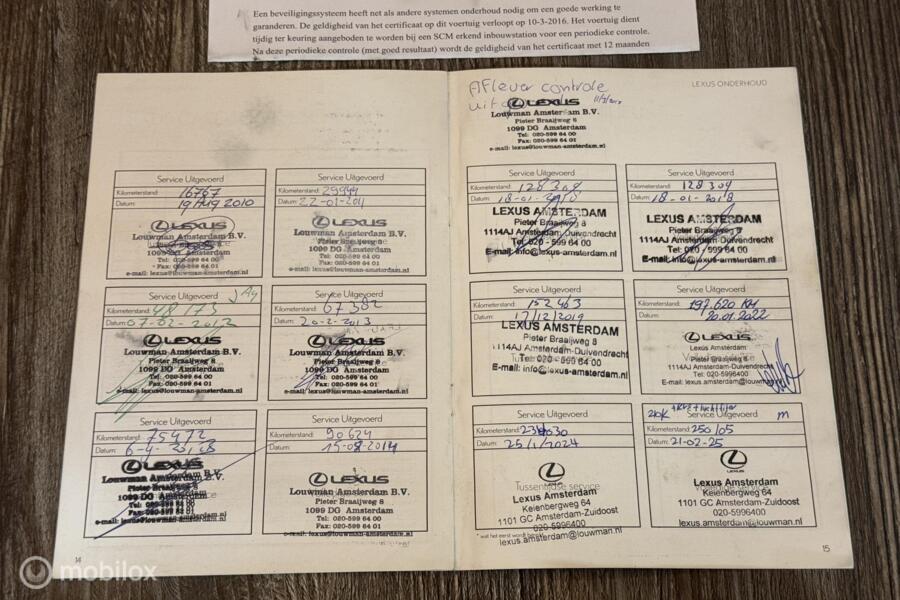 Een beveiligingssysteem heeft net als andere systemen onderhoud nodig om een goede werking te
garanderen. De geldigheid van het certificaat op dit voertuig verloopt op 10-3-2016. Het voertuig dient
tijdig ter keuring aangeboden te worden bij een SCM erkend inbouwstation voor een periodieke controle.
Na deze periodieke controle (met goed resultaat) wordt de geldigheid van het certificaat met 12 maanden
Service Uitgevoerd
Kilometerstand: 16767
Datum: 19 Aug 2010
LEXUS
Louwman Amsterdam B.V.
1099 DG Amsterdam
Tel: 020-599 64 00
Fax: 020-599 64 01
e-mail: lexus@louwman-amsterdam.nl
Service Uitgevoerd
Kilometerstand: 29944
Datum: 22-01-2011
LEXUS
Louwman Amsterdam B.V.
Pieter Braaijweg 8
1099 DG Amsterdam
Tel: 020-599 64 00
Fax: 020-599 64 01
e-mail: lexus@louwman-amsterdam.nl
Service Uitgevoerd
Kilometerstand: 48173
Datum: 07-02-2012
LEXUS
Louwman Amsterdam B.V.
Pieter Braaijweg 8
1099 DG Amsterdam
Tel: 020-599 64 00
Fax: 020-599 64 01
e-mail: lexus@louwman-amsterdam.nl
Service Uitgevoerd
Kilometerstand: 67382
Datum: 20-2-2013
LEXUS
Louwman Amsterdam B.V.
Pieter Braaijweg 8
1099 DG Amsterdam
Tel: 020-599 64 00
Fax: 020-599 64 01
e-mail: lexus@louwman-amsterdam.nl
Service Uitgevoerd
Kilometerstand: 75472
Datum:
LEXUS
Louwman Amsterdam B.V.
Pieter Braaijweg 8
1099 DG Amsterdam
Tel: 020-599 64 00
Fax: 020-599 64 01
e-mail: lexus@louwman-amsterdam.nl
Service Uitgevoerd
Kilometerstand: 90624
Datum:
LEXUS
Louwman Amsterdam B.V.
Pieter Braaijweg 8
1099 DG Amsterdam
Tel: 020-599 64 00
Fax: 020-599 64 01
e-mail: lexus@louwman-amsterdam.nl
14
LEXUS ONDERHOUD
Aflever controle
LEXUS
Louwman Amsterdam B.V.
Pieter Braaijweg 8
1099 DG Amsterdam
Tel: 020-599 64 00
Fax: 020-599 64 01
e-mail: lexus@louwman-amsterdam.nl
Service Uitgevoerd
Kilometerstand: 128304
Datum: 18-01-2018
LEXUS AMSTERDAM
Pieter Braaijweg 6
1114AJ Amsterdam-Duivendrecht
Tel: 020 - 599 64 00
E-mail: info@lexus-amsterdam.nl
Service Uitgevoerd
Kilometerstand: 128304
Datum: 18-01-2018
LEXUS AMSTERDAM
Pieter Braaijweg 6
1114AJ Amsterdam-Duivendrecht
Tel: 020 - 599 64 00
E-mail: info@lexus-amsterdam.nl
Service Uitgevoerd
Kilometerstand: 152463
Datum: 17/12/2019
LEXUS AMSTERDAM
Pieter Braaijweg 6
1114AJ Amsterdam-Duivendrecht
Tel: 020 - 599 64 00
E-mail: info@lexus-amsterdam.nl
Service Uitgevoerd
Kilometerstand: 197.620 KM
Datum: 20.01.2022
LEXUS
Lexus Amsterdam
Pieter Braaijweg 6
1114AJ Amsterdam-Duivendrecht
Tel: 020-5996400
E-mail: lexus.amsterdam@louwman.nl
Service Uitgevoerd
Kilometerstand:
Datum: 25/1/2024
Tussentijdse service
Lexus Amsterdam
Keienbergweg 64
1101 GC Amsterdam-Zuidoost
020-5996400
lexus.amsterdam@louwman.nl
Service Uitgevoerd
Kilometerstand: 250105
Datum: 21-02-25
LEXUS
Lexus Amsterdam
Keienbergweg 64
1101 GC Amsterdam-Zuidoost
020-5996400
lexus.amsterdam@louwman.nl
15
mobilox